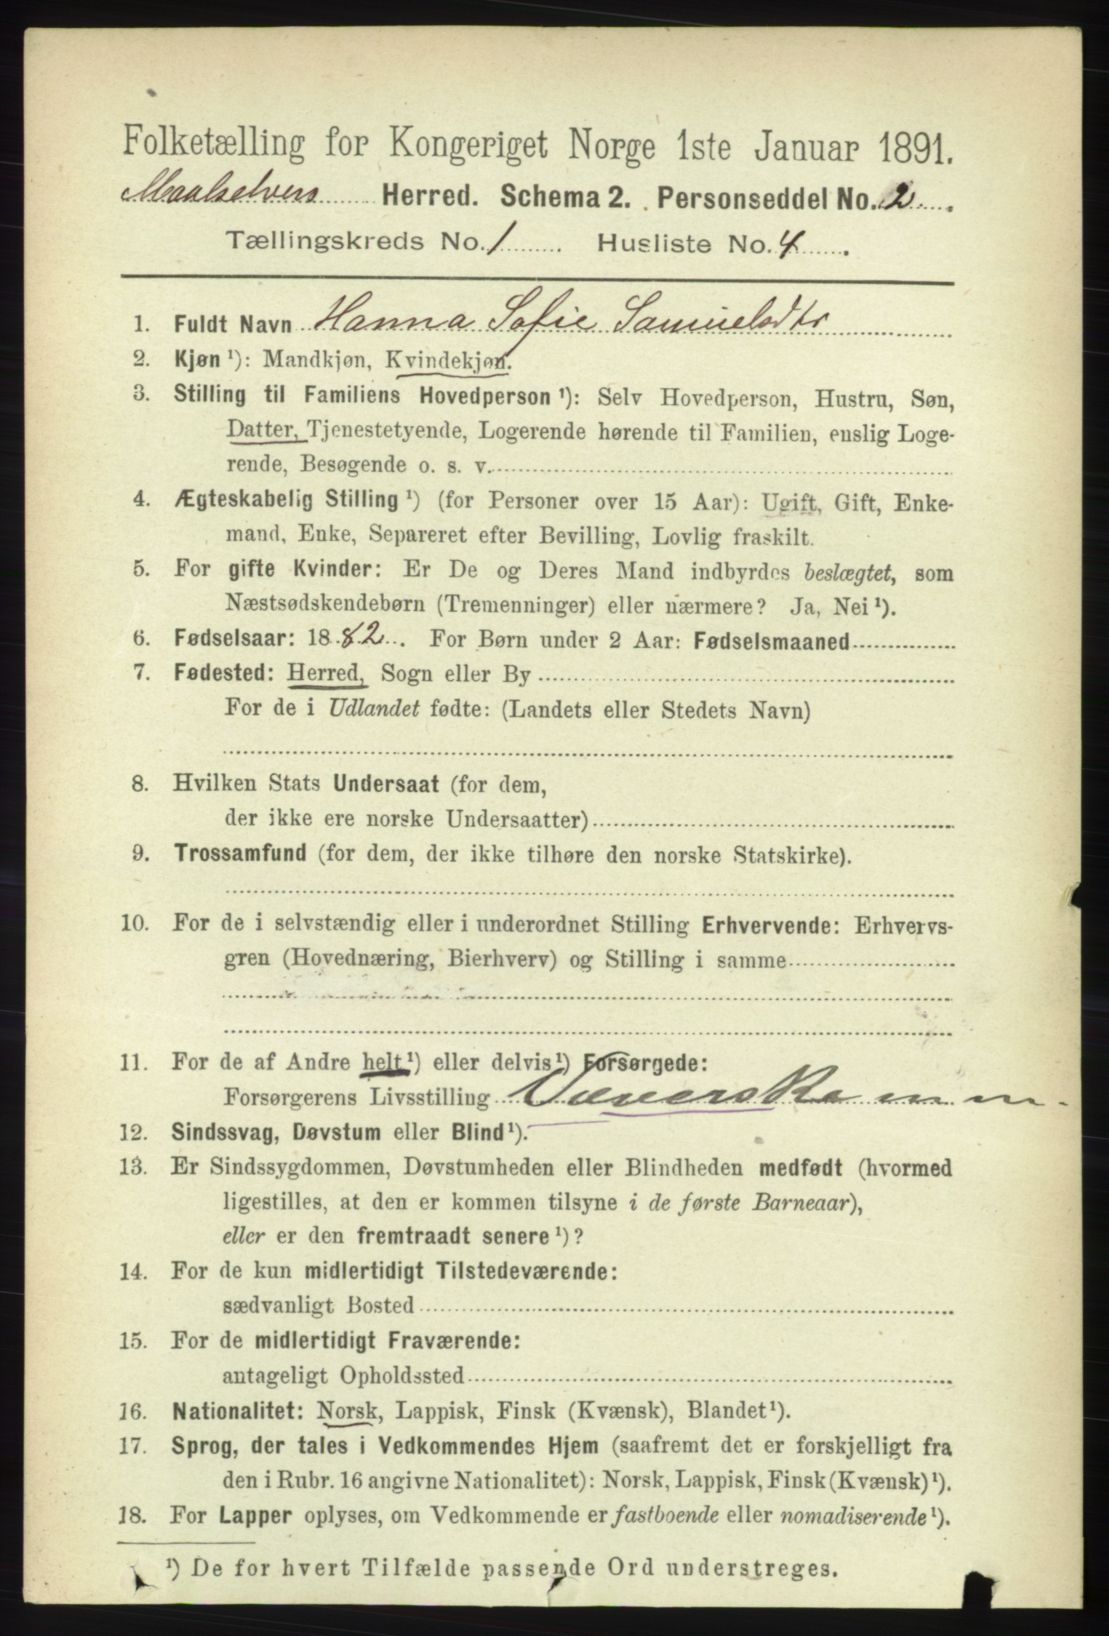 Folketælling for Kongeriget Norge 1ste Januar 1891.
Maalselvens Herred. Schema 2. Personseddel No. 2.
Tællingskreds No. 1 Husliste No. 4.
1. Fuldt Navn Hanna Sofie Samuelsdtr
2. Kjøn ¹): Mandkjøn, Kvindekjøn.
3. Stilling til Familiens Hovedperson ¹): Selv Hovedperson, Hustru, Søn,
Datter, Tjenestetyende, Logerende hørende til Familien, enslig Loge-
rende, Besøgende o. s. v.
4. Ægteskabelig Stilling ¹) (for Personer over 15 Aar): Ugift, Gift, Enke-
mand, Enke, Separeret efter Bevilling, Lovlig fraskilt.
5. For gifte Kvinder: Er De og Deres Mand indbyrdes beslægtet, som
Næstsødskendebørn (Tremenninger) eller nærmere? Ja, Nei ¹).
6. Fødselsaar: 1882. For Børn under 2 Aar: Fødselsmaaned
7. Fødested: Herred, Sogn eller By
For de i Udlandet fødte: (Landets eller Stedets Navn)
8. Hvilken Stats Undersaat (for dem,
der ikke ere norske Undersaatter)
9. Trossamfund (for dem, der ikke tilhøre den norske Statskirke).
10. For de i selvstændig eller i underordnet Stilling Erhvervende: Erhvervs-
gren (Hovednæring, Bierhverv) og Stilling i samme
11. For de af Andre helt ¹) eller delvis ¹) Forsørgede:
Forsørgerens Livsstilling Væverske m m.
12. Sindssvag, Døvstum eller Blind ¹).
13. Er Sindssygdommen, Døvstumheden eller Blindheden medfødt (hvormed
ligestilles, at den er kommen tilsyne i de første Barneaar),
eller er den fremtraadt senere ¹)?
14. For de kun midlertidigt Tilstedeværende:
sædvanligt Bosted
15. For de midlertidigt Fraværende:
antageligt Opholdssted
16. Nationalitet: Norsk, Lappisk, Finsk (Kvænsk), Blandet ¹).
17. Sprog, der tales i Vedkommendes Hjem (saafremt det er forskjelligt fra
den i Rubr. 16 angivne Nationalitet): Norsk, Lappisk, Finsk (Kvænsk) ¹).
18. For Lapper oplyses, om Vedkommende er fastboende eller nomadiserende ¹).
¹) De for hvert Tilfælde passende Ord understreges.